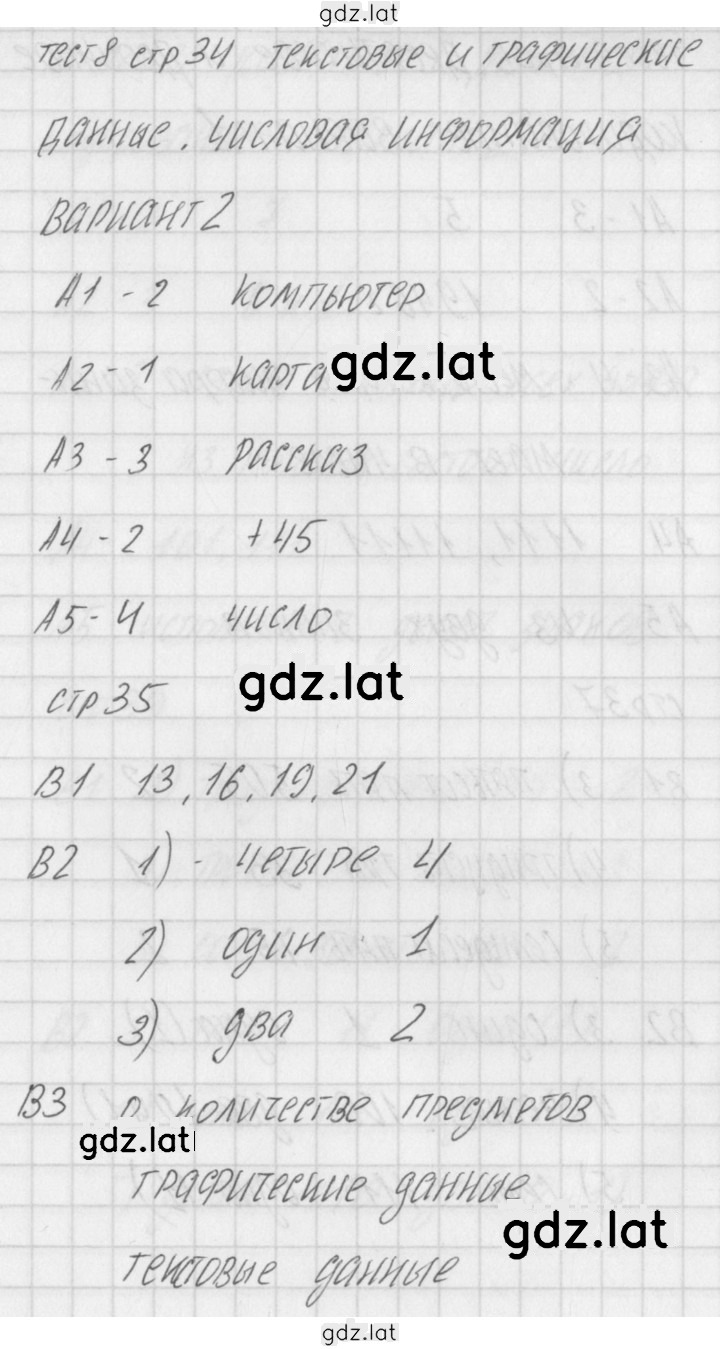 gdz.lat
тест8 стр34 текстовые и графические
данные. числовая информация
вариант 2
А1 - 2 компьютер
А2 - 1 карта gdz.lat
А3 - 3 рассказ
А4 - 2 +45
А5 - 4 число
стр 35 gdz.lat
В1 13, 16, 19, 21
В2 1) - четыре 4
2) один 1
3) два 2
В3 о количестве предметов
gdz.lat
графические данные
gdz.lat
текстовые данные
gdz.lat